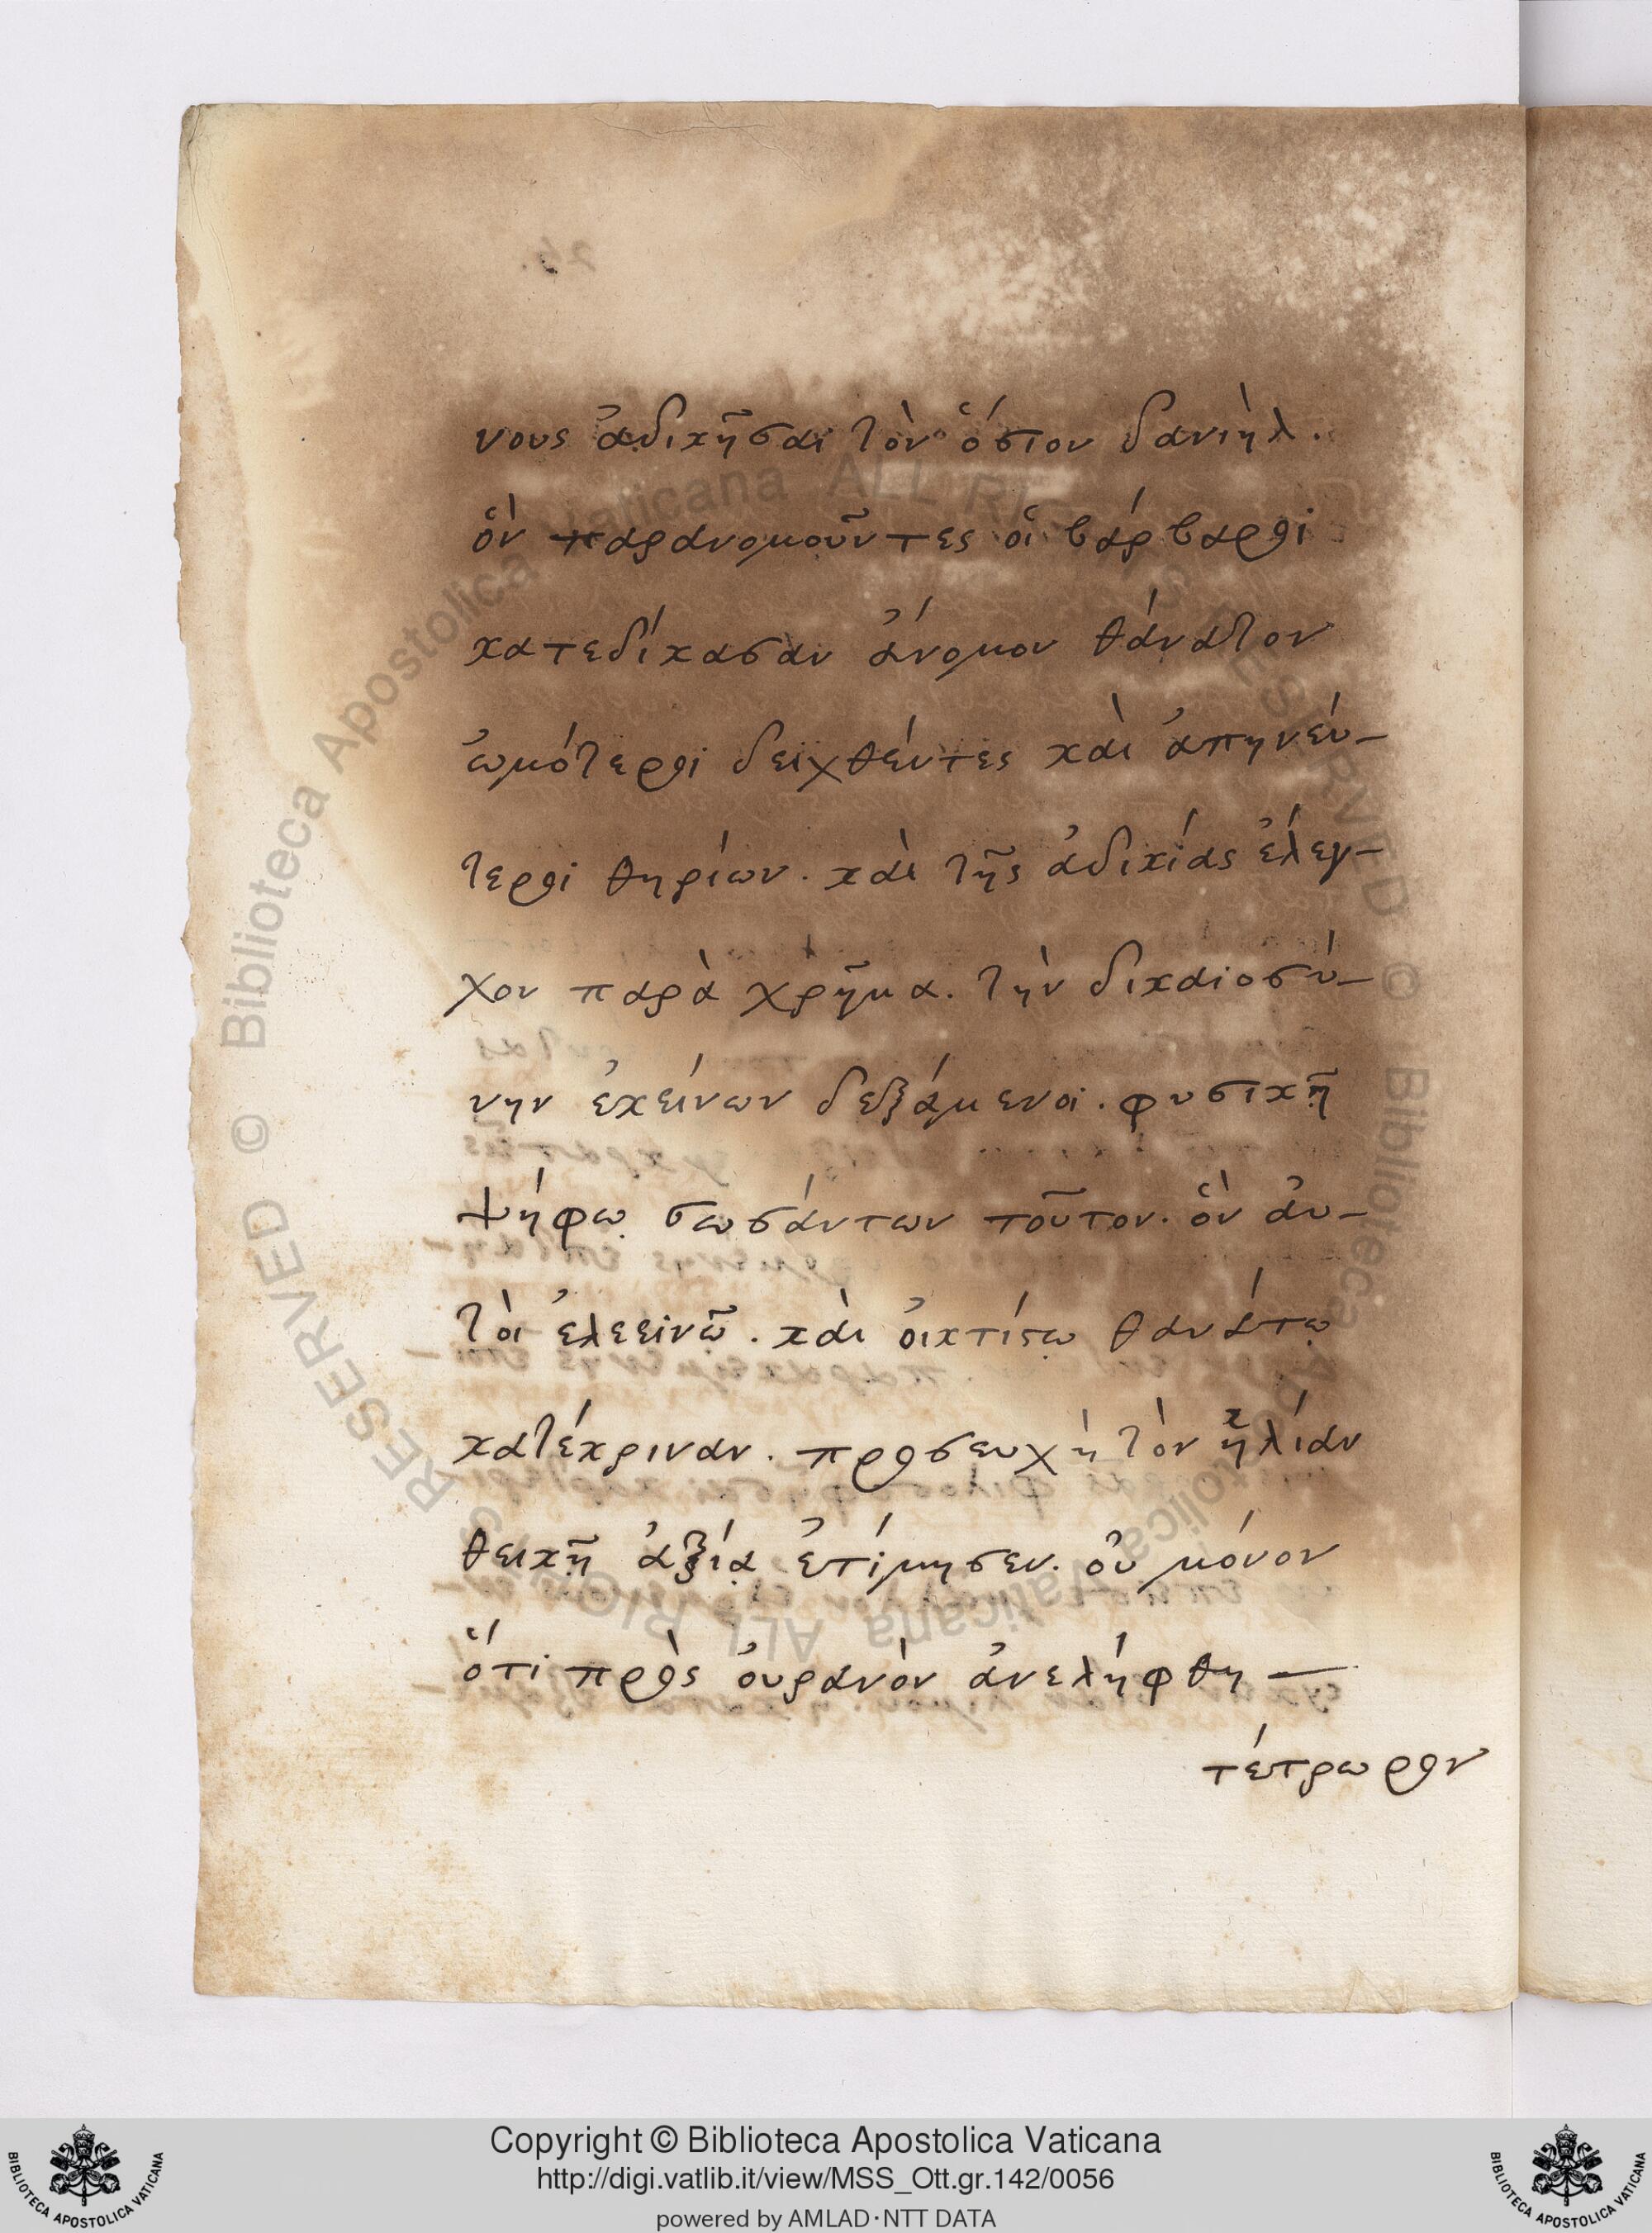 νους ἀδικῆσαι τὸν ὅσιον δανιὴλ.
ὃν παρανομοῦντες οἱ βάρβαροι
κατεδίκασαν ἄνομον θάνατον
ὠμότεροι δειχθέντες καὶ ἀπηνέσ-
τεροι θηρίων. καὶ τῆς ἀδικίας ἔλεγ-
χον παρὰ χρῆμα. τὴν δικαιοσύ-
νην ἐκείνων δεξάμενοι. φυσικῇ
ψήφῳ σωσάντων τοῦτον. ὃν αὐ-
τοὶ ἐλεεινῶ. καὶ οἰκτίστῳ θανάτῳ
κατέκριναν. προσευχὴ τὸν ἠλίαν
θεικῇ ἀξίᾳ ἐτίμησεν. οὐ μόνον
ὅτι πρὸς οὐρανὸν ἀνελήφθη —
τέτρωρον
Copyright © Biblioteca Apostolica Vaticana
http://digi.vatlib.it/view/MSS_Ott.gr.142/0056
powered by AMLAD·NTT DATA
BIBLIOTECA APOSTOLICA VATICANA
BIBLIOTECA APOSTOLICA VATICANA